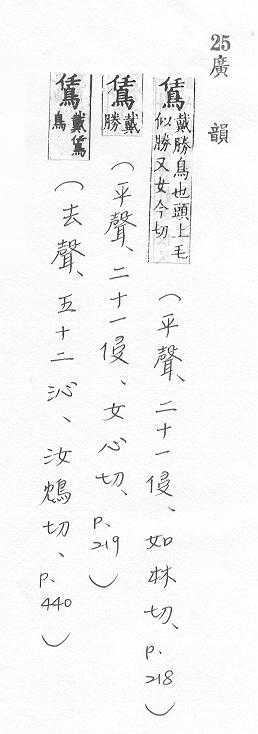 25廣韻
鵀戴勝鳥也頭上毛似勝又女今切（平聲、二十一侵、如林切、p.218）
鵀戴勝（平聲、二十一侵、女心切、p.219）
鵀戴鵀鳥（去聲、五十二沁、汝鴆切、p.440）